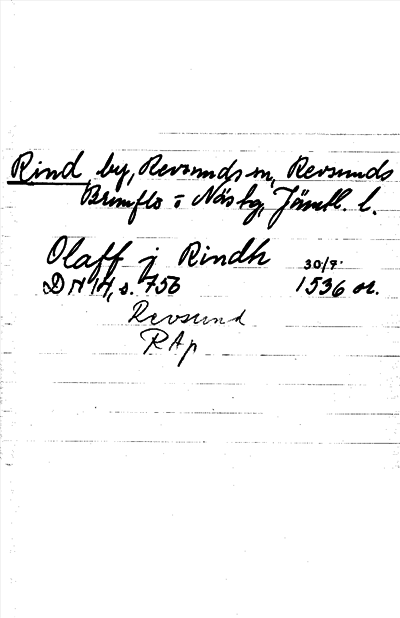 Rind by, Revsunds sn, Revsunds
Brunflo o Näs tg, Jämtl. l.
Olaff j Rindh 30/7
DN 14, s. 756 1536 or.
Revsund
RAp